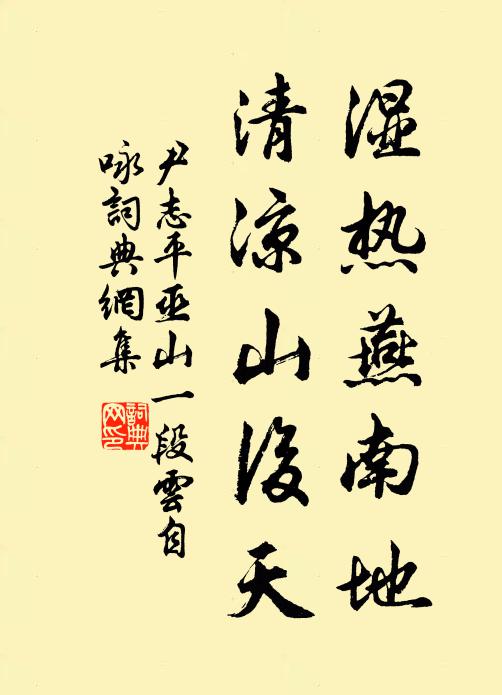 湿热燕南地
清凉山後天
尹志平巫山一段雲自
咏詞典網集
詞典网印